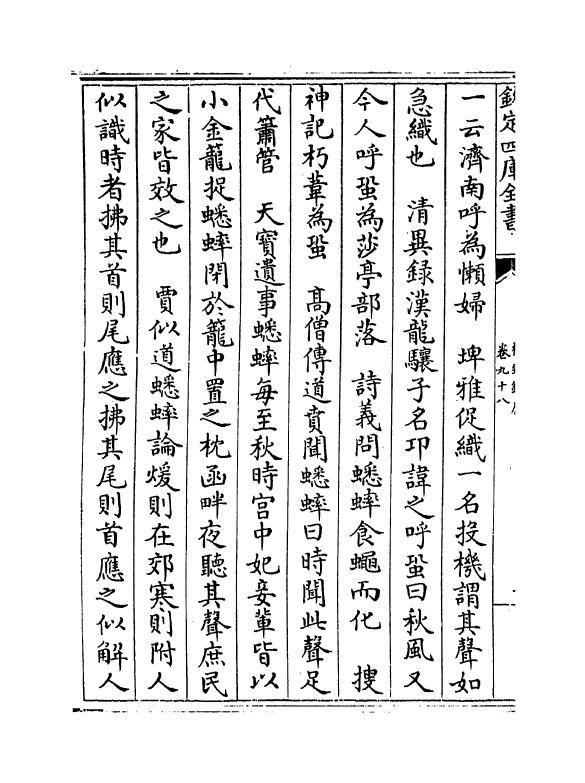 欽定四庫全書
卷九十八
一云濟南呼為懶婦　埤雅促織一名投機謂其聲如
急織也　清異録漢龍驤子名卭諱之呼蛩曰秋風又
今人呼蛩為莎亭部落　詩義問蟋蟀食蠅而化　搜
神記朽葦為蛩　髙僧傳道賁聞蟋蟀曰時聞此聲足
代簫管　天寳遺事蟋蟀毎至秋時宫中妃妾輩皆以
小金籠捉蟋蟀閉於籠中置之枕函畔夜聽其聲庶民
之家皆效之也　賈似道蟋蟀論煖則在郊寒則附人
似識時者拂其首則尾應之拂其尾則首應之似解人